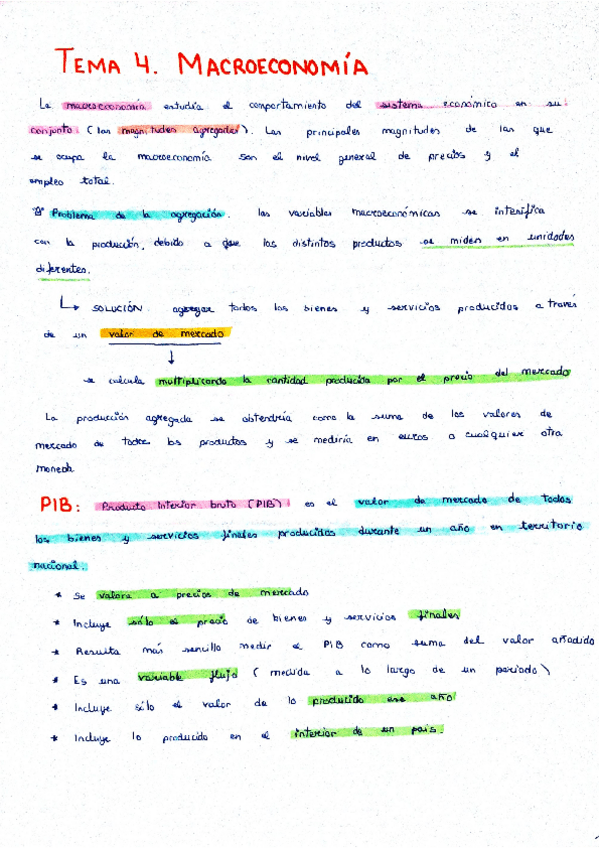 TEMA 4. MACROECONOMÍA
La macroeconomía estudia el comportamiento del sistema económico en su
conjunto (las magnitudes agregadas). Las principales magnitudes de las que
se ocupa la macroeconomía son el nivel general de precios y el
empleo total.
Problema de la agregación. Las variables macroeconómicas se intensifica
con la producción, debido a que los distintos productos se miden en unidades
diferentes.
↳ SOLUCIÓN agregar todos los bienes y servicios producidos a través
de un valor de mercado
↓
se calcula multiplicando la cantidad producida por el precio del mercado
La producción agregada se obtendría como la suma de los valores de
mercado de todos los productos y se mediría en euros o cualquier otra
moneda
PIB: Producto Interior bruto (PIB) es el valor de mercado de todos
los bienes y servicios finales producidos durante un año en territorio
nacional.
* Se valora a precios de mercado
* Incluye sólo el precio de bienes y servicios finales
* Resulta más sencillo medir el PIB como suma del valor añadido
* Es una variable flujo (medida a lo largo de un periodo)
* Incluye sólo el valor de lo producido ese año
* Incluye lo producido en el interior de un país.